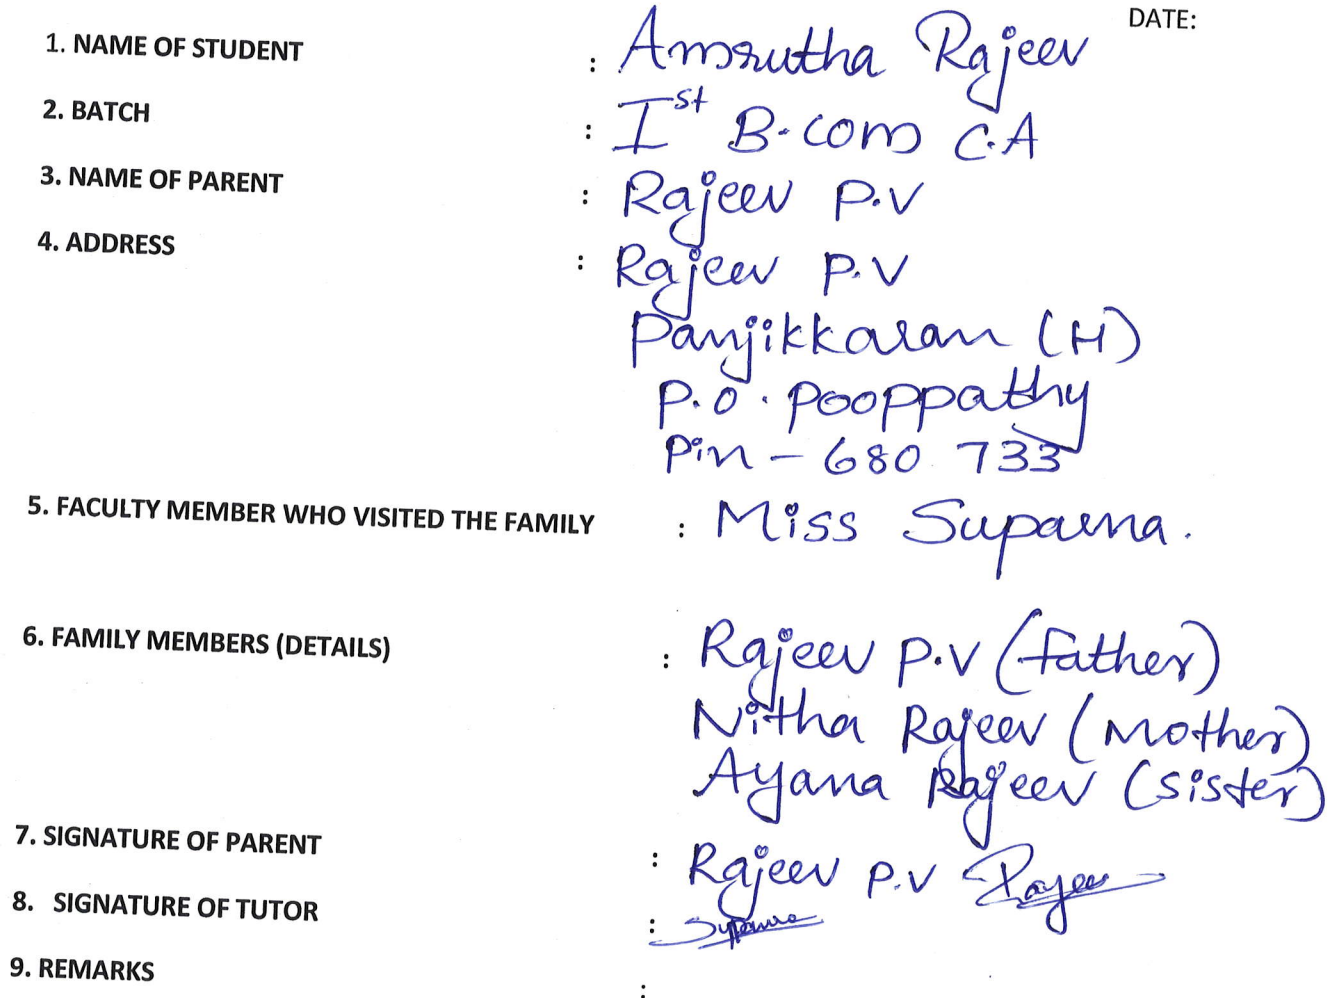 DATE:
1. NAME OF STUDENT : Amrutha Rajeev
2. BATCH : Ist B.com C.A
3. NAME OF PARENT : Rajeev P.V
4. ADDRESS : Rajeev P.V
Panjikkaran (H)
P.O. Pooppathy
Pin - 680 733
5. FACULTY MEMBER WHO VISITED THE FAMILY : Miss Suparna.
6. FAMILY MEMBERS (DETAILS) : Rajeev P.V (father)
Nitha Rajeev (Mother)
Ayana Rajeev (sister)
7. SIGNATURE OF PARENT : Rajeev P.V Rajeev
8. SIGNATURE OF TUTOR : Suparna
9. REMARKS :